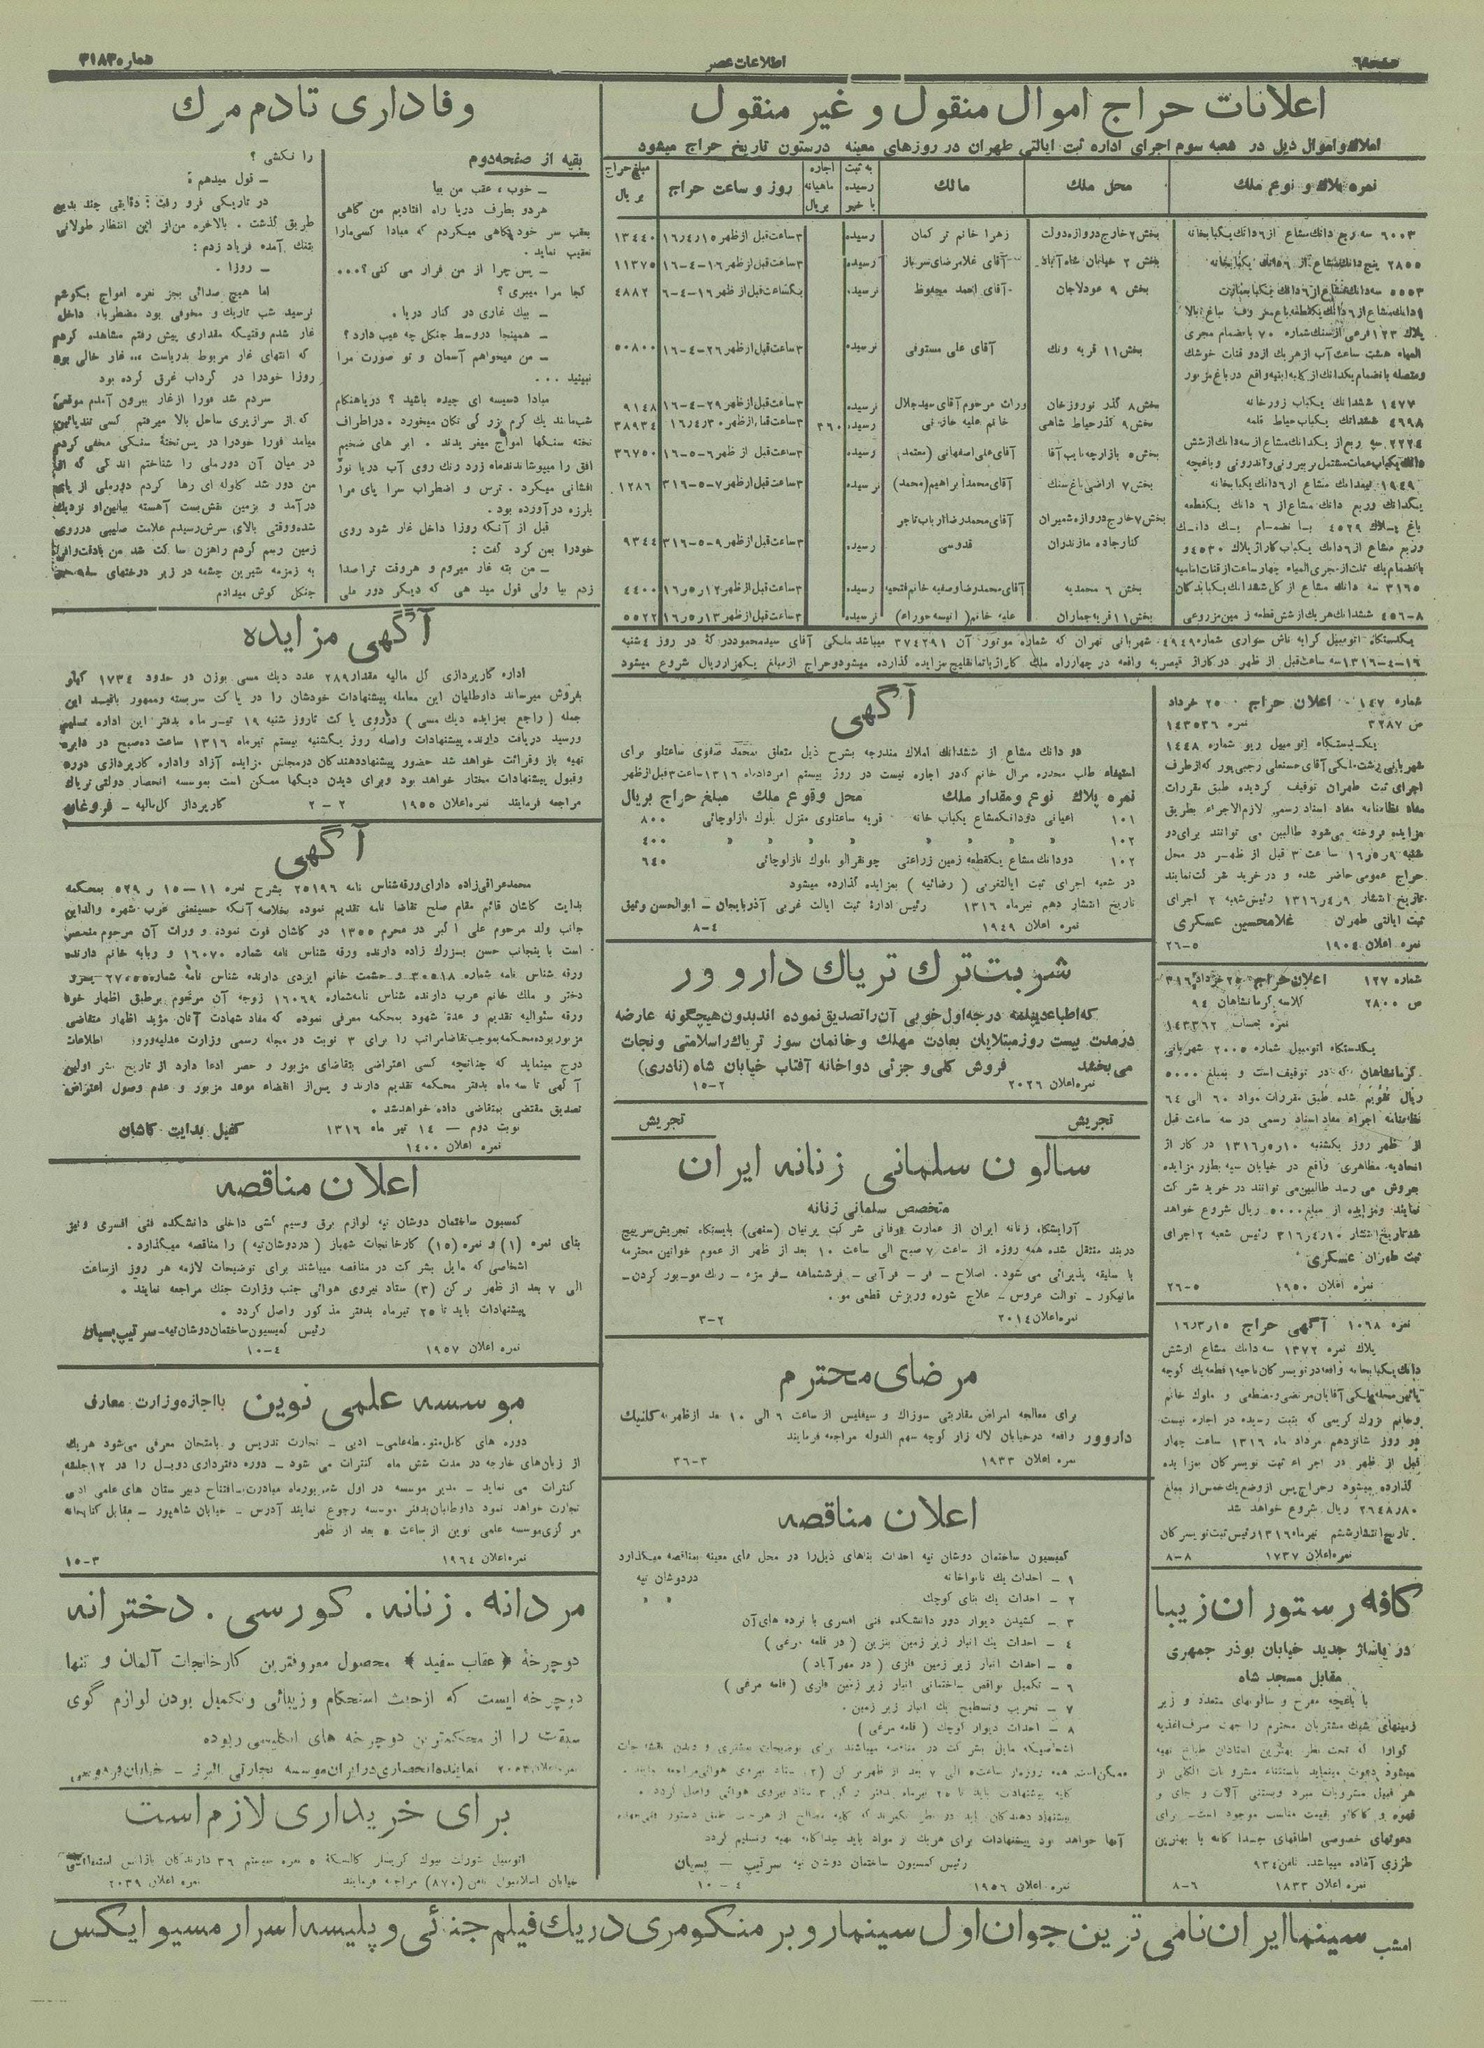 صفحه ٦
اطلاعات عصر
شماره ۳۱۸۳
اعلانات حراج اموال منقول و غیر منقول
املاك و اموال ذیل در شعبه سوم اجرای اداره ثبت ایالتی طهران در روزهای معینه درستون تاریخ حراج میشود
نمره پلاك و نوع ملك
محل ملك
مالك
به ثبت رسیده یا خیر
اجاره ماهیانه بریال
روز و ساعت حراج
مبلغ حراج بریال
٦۰۰۳ سه ربع دانك مشاع از ٦ دانك یکبابخانه بخش ۲ خارج دروازه دولت زهرا خانم تر کمان رسیده ۳ ساعت قبل از ظهر ۱٦ر٤ر۱۵ ۱۳٤٤۰
۲۸۵۵ پنج دانك مشاع از ٦ دانك یکبابخانه بخش ۲ خیابان شاه آباد آقای غلامرضای سرباز رسیده ۳ ساعت قبل از ظهر ۱٦-٤-۱٦ ۱۱۳۷۵
بخش ۹ عودلاجان آقای احمد محفوظ نرسیده یکساعت قبل از ظهر ۱٦-٤-٦ ٤۸۸۲
بخش ۱۱ قریه ونك آقای علی مستوفی نرسیده ۳ ساعت قبل از ظهر ۲٦-٤-۱٦ ۵۰۸۰۰
۱٤۷۷ ششدانك یکباب زورخانه بخش ۸ گذر نوروزخان وراث مرحوم آقای سیدجلال نرسیده ۳ ساعت قبل از ظهر ۲۹-٤-۱٦ ۹۱٤۸
٤٦۹۸ ششدانك یکباب حیاط قلمه بخش ۹ گذر حیاط شاهی رسیده ۳٦۰ ۳۸۹۳٤
بخش ۵ بازارچه نایب آقا آقای علی اصفهانی (معتمد) رسیده ۳ ساعت قبل از ظهر ٦-۵-۱٦ ۳٦۷۵۰
۱۹٤۹ نیمدانك مشاع از ٦ دانك یکبابخانه بخش ۷ اراضی باغ سنك آقای محمد ابراهیم (محمد) نرسیده ۳ ساعت قبل از ظهر ۷-۵-۳۱٦ ۱۲۸٦
بخش ۷ خارج دروازه شمیران کنار جاده مازندران آقای محمدرضا ارباب تاجر قدوسی رسیده ۳ ساعت قبل از ظهر ۹-۵-۳۱٦ ۹۳٤٤
۳۱٦۵ سه دانك مشاع از کل ششدانك یکبابدکان بخش ٦ محمدیه آقای محمدرضا وصفیه خانم فتحیه رسیده ۳ ساعت قبل از ظهر ۱٦ر۵ر۱۲ ٤٤۰۰
٤۵٦-۸ ششدانك هریك از شش قطعه زمین مزروعی بخش ۱۱ قریه جماران نرسیده ۳ ساعت قبل از ظهر ۱٦ر۵ر۱۳ ۵۵۲۲
وفاداری تادم مرك
بقیه از صفحه دوم
ـ خوب ، عقب من بیا
هر دو بطرف دریا راه افتادیم من گاهی
بعقب سر خود نگاهی میکردم که مبادا کسی مارا
تعقیب نماید .
ـ پس چرا از من فرار می کنی ؟...
کجا مرا میبری ؟
ـ بیك غاری در کنار دریا .
ـ همینجا در وسط جنگل چه عیب دارد ؟
ـ من میخواهم آسمان و تو صورت مرا
نبینید ...
مبادا دسیسه ای چیده باشید ؟ در باهنگام
شب مانند یك کرم بزرگی تکان میخورد . در اطراف
تخته سنگها امواج میغریدند . ابر های ضخیم
افق را میپوشاندند ماه زرد رنك روی آب دریا نور
افشانی میکرد . ترس و اضطراب سرا پای مرا
بلرزه در آورده بود .
قبل از آنکه روزا داخل غار شود روی
خودرا بمن کرد گفت :
ـ من بته غار میروم و هروقت ترا صدا
زدم بیا ولی قول مید هی که دیگر دور ملی
را نکشی ؟
ـ قول میدهم !
در تاریکی فرو رفت : دقایقی چند بدین
طریق گذشت . بالاخره من از این انتظار طولانی
بتنك آمده فریاد زدم :
ـ روزا .
اما هیچ صدائی بجز نعره امواج بگوشم
نرسید شب تاریك و مخوفی بود مضطربا داخل
غار شدم وقتیکه مقداری پیش رفتم مشاهده کردم
که انتهای غار مربوط بدریاست ... غار خالی بود
روزا خودرا در گرداب غرق کرده بود
سردم شد فورا از غار بیرون آمدم موقعی
که از سرازیری ساحل بالا میرفتم کسی
میامد فورا خودرا در پس تخته سنگی مخفی کردم
در میان آن دور ملی را شناختم اندکی که از
من دور شد گلوله ای رها کردم دور ملی از پای
درآمد و بزمین نقش بست آهسته ببالین او نزدیك
شده وقتی بالای سرش رسیدم علامت صلیبی در روی
زمین رسم کردم راهزن ساکت شد
به زمزمه شیرین چشمه در زیر درختهای
جنگل گوش میدادم
یکدستگاه اتومبیل کرایه ناش سواری شماره ٤۹٤۹ شهربانی تهران که شماره موتور آن ۳۷٤۲۹۱ میباشد ملکی آقای سیدمحمود در روز ٤ شنبه
۱٦-٤-۱۳۱٦ سه ساعت قبل از ظهر در گاراژ قیصریه واقعه در چهارراه ملك گاراژ باتمانقلیچ بمزایده گذارده میشود و حراج از مبلغ یکهزار ریال شروع میشود
آگهی مزایده
اداره کارپردازی کل مالیه مقدار ۲۸۹ عدد دیك مسی بوزن در حدود ۱۷۳٤ کیلو
بفروش میرساند دارطلبان این معامله پیشنهادات خودشان را در پاکت سربسته وممهور باقید این
جمله ( راجع بمزایده دیك مسی ) در روی پاکت تا روز شنبه ۱۹ تیر ماه بدفتر این اداره تسلیم
ورسید دریافت دارند. پیشنهادات واصله روز یکشنبه بیستم تیرماه ۱۳۱٦ ساعت ده صبح در دایره
تهیه باز وقرائت خواهد شد حضور پیشنهاددهندگان در مجلس مزایده آزاد واداره کارپردازی در رد
وقبول پیشنهادات مختار خواهد بود وبرای دیدن دیگها ممکن است بموسسه انحصار دولتی تریاك
مراجعه فرمایند نمره اعلان ۱۹۵۵ ۲-۲ کارپرداز کل مالیه ـ فروغان
آگهی
محمد عراقی زاده دارای ورقه شناس نامه ۲۵۱۹٦ بشرح نمره ۱۱-۱۵ ر۵۲۹ بمحکمه
بدایت کاشان قائم مقام صلح تقاضا نامه تقدیم نموده بخلاصه آنکه حسینعلی عرب شهره والداین
جانب ولد مرحوم علی اکبر در محرم ۱۳۵۵ در کاشان فوت نموده و وراث آن مرحوم منحصر
است با ینجانب حسن بزرك زاده دارنده ورقه شناس نامه شماره ۱٦۰۷۰ و ربابه خانم دارنده
ورقه شناس نامه شماره ۳۰۵۱۸ و حشمت خانم ایزدی دارنده شناس نامه
دختر و ملك خانم عرب دارنده شناس نامه شماره ۱٦۰٦۹ زوجه آن مرحوم بر طبق اظهار خود
ورقه سئوالیه تقدیم و عده شهود بمحکمه معرفی نموده که مفاد شهادت آنان مؤید اظهار متقاضی
مزبور بوده محکمه بموجب تقاضا مراتب را برای ۳ نوبت در مجله رسمی وزارت عدلیه و روزنامه اطلاعات
درج مینماید که چنانچه کسی اعتراضی بتقاضای مزبور و حصر ادعا دارد از تاریخ نشر اولین
آگهی تا سه ماه بدفتر محکمه تقدیم دارند و پس از انقضاء موعد مزبور و عدم وصول اعتراض
تصدیق مقتضی بمتقاضی داده خواهد شد .
نوبت دوم ـ ۱٤ تیر ماه ۱۳۱٦ کفیل بدایت کاشان
نمره اعلان ۱٤۰۰
اعلان مناقصه
کمسیون ساختمان دوشان تپه لوازم برق وسیم کشی داخلی دانشکده فنی افسری ونیز
بنای نمره (۱) و نمره (۱۵) کارخانجات شهباز ( در دوشان تپه ) را مناقصه میگذارد.
اشخاصی که مایل بشر کت در مناقصه میباشند برای توضیحات لازمه هر روز از ساعت
الی ۷ بعد از ظهر بر کن (۳) ستاد نیروی هوائی جنب وزارت جنك مراجعه نمایند .
پیشنهادات باید تا ۲۵ تیرماه بدفتر مذکور واصل گردد .
رئیس کمیسیون ساختمان دوشان تپه ـ سرتیپ پسیان
نمره اعلان ۱۹۵۷ ٤-۱۰
موسسه علمی نوین با اجازه وزارت معارف
دوره های کامل متوسطه علمی ـ ادبی ـ تجارت تدریس و بامتحان معرفی می شود هریك
از زبان های خارجه در مدت شش ماه کنترات می شود ـ دوره دفترداری دوبل را در ۱۲ جلسه
کنترات می نماید ـ مدیر موسسه در اول شهریور ماه مبادرت بافتتاح دبیرستان های علمی ادبی
تجارت خواهد نمود داوطلبان بدفتر موسسه رجوع نمایند آدرس ـ خیابان شاهپور ـ مقابل کتابخانه
مرکزی موسسه علمی نوین از ساعت ۵ بعد از ظهر
نمره اعلان ۱۹٦٤ ۳-۱۵
مردانه . زنانه . کورسی . دخترانه
دوچرخهٔ «عقاب سفید» محصول معروفترین کارخانجات آلمان و تنها
دوچرخه ایست که از حیث استحکام وزیبائی وتکمیل بودن لوازم گوی
سبقت را از محکمترین دوچرخه های انگلیسی ربوده
نماینده انحصاری در ایران موسسه تجارتی البرز ـ خیابان فردوسی
برای خریداری لازم است
اتومبیل شورلت بیوك کریسلر کالسکهٔ ۵ نمره سیستم ۳٦ دارندگان باژانس
خیابان اسلامبول تلفن (۸۷۰) مراجعه فرمایند نمره اعلان ۲۰۳۹
آگهی
دو دانك مشاع از ششدانك املاك مندرجه بشرح ذیل متعلق بمحمد صفوی ساعتلو برای
استیفاء طلب مخدره مرال خانم که در اجاره نیست در روز بیستم امردادماه ۱۳۱٦ ساعت ۳ قبل از ظهر
نمره پلاك نوع ومقدار ملك محل وقوع ملك مبلغ حراج بریال
۱۰۱ اعیانی دودانگ مشاع یکباب خانه قریه ساعتلوی منزل بلوك نازلوچائی ۸۰۰
۱۰۲ » » » » » » ٤۰۰
۱۰۲ دودانك مشاع یکقطعه زمین زراعتی چونقرالو بلوك نازلوچائی ٦٤۰
در شعبه اجرای ثبت ایالت غربی ( رضائیه ) بمزایده گذارده میشود
تاریخ انتشار دهم تیرماه ۱۳۱٦ رئیس ادارهٔ ثبت ایالت غربی آذربایجان ـ ابوالحسن وثیق
نمره اعلان ۱۹٤۹ ٤-۸
شربت ترك تریاك دارو ور
که اطباء دیپلمه درجه اول خوبی آن را تصدیق نموده اند بدون هیچگونه عارضه
در مدت بیست روز مبتلایان بعادت مهلك و خانمان سوز تریاك را سلامتی و نجات
می بخشد فروش کلی و جزئی دواخانه آفتاب خیابان شاه (نادری)
نمره اعلان ۲۰۲٦ ۲-۱۵
تجریش تجریش
سالون سلمانی زنانه ایران
متخصص سلمانی زنانه
آرایشگاه زنانه ایران از عمارت فوقانی شرکت پرنیان (منهی) بایستگاه تجریش سرپیچ
دربند منتقل شده همه روزه از ساعت ۷ صبح الی ساعت ۱۰ بعد از ظهر از عموم خوانین محترمه
با سلیقه پذیرائی می شود . اصلاح ـ فر ـ فرآبی ـ فرششماهه ـ فرمزه ـ رنك مو ـ بور کردن ـ
مانیکور ـ توالت عروس ـ علاج شوره وریزش قطعی مو .
نمره اعلان ۲۰۱٤ ۲-۳
مرضای محترم
برای معالجه امراض مقاربتی سوزاك و سیفلیس از ساعت ٦ الی ۱۰ بعد از ظهر به کلنیك
داروور واقعه در خیابان لاله زار کوچه سهم الدوله مراجعه فرمایند
نمره اعلان ۱۹۳۳ ۳-۳٦
اعلان مناقصه
کمیسیون ساختمان دوشان تپه احداث بناهای ذیل را در محل های معینه بمناقصه میگذارد
۱ ـ احداث یك نانواخانه در دوشان تپه
۲ ـ احداث یك بنای کوچك » »
۳ ـ کشیدن دیوار دور دانشکده فنی افسری با نرده های آن
٤ ـ احداث یك انبار زیر زمین بنزین ( در قلعه مرغی )
۵ ـ احداث انبار زیر زمین فلزی ( در مهر آباد )
٦ ـ تکمیل نواقص ساختمانی انبار زیر زمین فلزی ( قلعه مرغی )
۷ ـ تخریب وتسطیح یك انبار زیر زمین .
۸ ـ احداث دیوار کوچك ( قلعه مرغی )
آنها خواهد بود پیشنهادات برای هریك از مواد باید جداگانه تهیه وتسلیم گردد
رئیس کمسیون ساختمان دوشان تپه سرتیپ ـ پسیان
نمره اعلان ۱۹۵٦ ٤-۱۰
شماره ۱٤۷ اعلان حراج ۲۵ خرداد
ص ۳۲۸۷ نمره ۱٤۳۵۳٦
یکدستگاه اتومبیل ریو شماره ۱٤٤۸
شهربانی رشت ملکی آقای حسنعلی رجبی پور که از طرف
اجرای ثبت طهران توقیف گردیده طبق مقررات
مفاد نظامنامه مفاد اسناد رسمی لازم الاجراء بطریق
مزایده فروخته می شود طالبین می توانند برای دو
شنبه ۱٦ر۵ر۹ ساعت ۳ قبل از ظهر در محل
حراج عمومی حاضر شده و در خرید شرکت نمایند
تاریخ انتشار ۱۳۱٦ر٤ر۹ رئیس شعبه ۲ اجرای
ثبت ایالتی طهران غلامحسین عسکری
نمره اعلان ۱۹۰٤ ۵-۲٦
شماره ۱۲۷ اعلان حراج
ص ۲۸۰۰ کلاسه کرمانشاهان ۹٤
نمره بحساب ۱٤۳۳٦۲
یکدستگاه اتومبیل شماره ۲۰۰۵ شهربانی
کرمانشاهان که در توقیف است و بمبلغ ۵۰۰۰
ریال تقویم شده طبق مقررات مواد ٦۰ الی ٦٤
نظامنامه اجراء مفاد اسناد رسمی در سه ساعت قبل
از ظهر روز یکشنبه ۱۳۱٦ر۵ر۱۰ در گاراژ
اتحادیه مظاهری واقع در خیابان سپه بطور مزایده
بفروش می رسد طالبین می توانند در خرید شرکت
نمایند ومزایده از مبلغ ۵۰۰۰ ریال شروع خواهد
شد تاریخ انتشار ۳۱٦ر٤ر۱۰ رئیس شعبه ۲ اجرای
ثبت طهران عسکری
نمره اعلان ۱۹۵۰ ۵-۲٦
نمره ۱۰٦۸ آگهی حراج ۱٦ر۳ر۱۵
پلاك نمره ۱۳۷۲ سه دانك مشاع از شش
دانك یکبابخانه واقعه در تویسرکان ناحیه ۱ قطعه یك کوچه
پائین محله ملکی آقایان مرتضی ومصطفی و ملوك خانم
وخانم بزرك کریمی که بثبت رسیده در اجاره نیست
در روز شانزدهم مرداد ماه ۱۳۱٦ ساعت چهار
قبل از ظهر در اجراء ثبت تویسرکان بمزایده
گذارده میشود وحراج پس از وضع یك خمس از مبلغ
۲٦٤۸ر۸۰ ریال شروع خواهد شد
تاریخ انتشار ششم تیرماه ۱۳۱٦ رئیس ثبت تویسرکان
نمره اعلان ۱۷۳۷ ۸-۸
کافه رستوران زیبا
در پاساژ جدید خیابان بوذر جمهری
مقابل مسجد شاه
با باغچه مفرح و سالونهای متعدد و زیر
زمینهای شیك مشتریان محترم را جهت صرف اغذیه
گوارا که تحت نظر بهترین استادان طباخ تهیه
میشود دعوت مینماید باستثناء مشروبات الکلی از
هر قبیل مشروبات سرد وبستنی آلات و چای و
قهوه و کاکائو بقیمت مناسب موجود است ـ برای
دعوتهای خصوصی اطاقهای جداگانه با بهترین
طرزی آماده میباشد. تلفن ۹۳٤
نمره اعلان ۱۸۳۳ ٦-۸
امشب سینما ایران نامی ترین جوان اول سینما روبر منکومری در یك فیلم جنائی و پلیسه اسرار مسیو ایکس